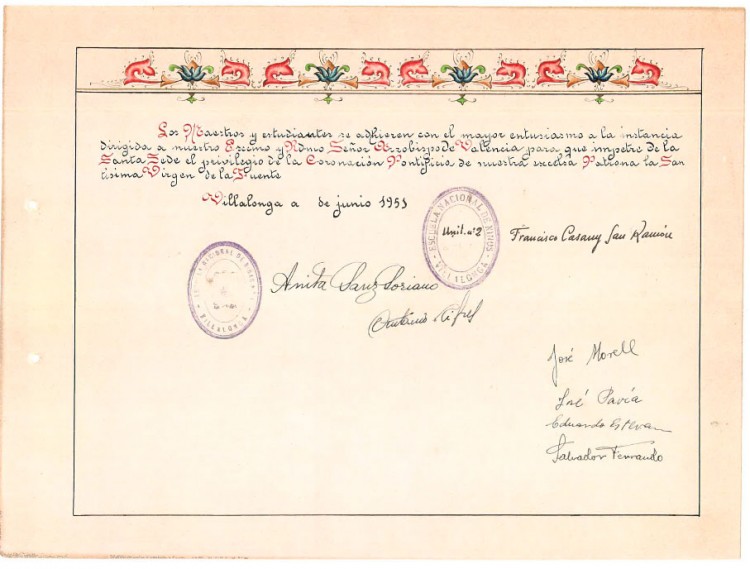 Los Maestros y estudiantes se adhieren con el mayor entusiasmo a la instancia
dirigida a nuestro Excmo y Rdmo Señor Arzobispo de Valencia para que impetre de la
Santa Sede el privilegio de la Coronación Pontificia de nuestra excelsa Patrona la San
tísima Virgen de la Fuente
Villalonga a de junio 1951
ESCUELA NACIONAL DE NIÑOS
Unit. nº 2
VILLALONGA
Francisco Casany San Ramón
VILLALONGA
Anita Sanz Soriano
Antonio
José Morell
José Pavía
Eduardo Estevan
Salvador Ferrando